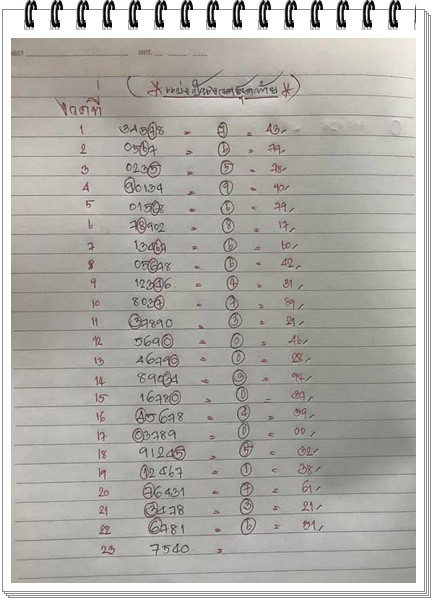 DATE
งวดที่
1 34578 = 7 = 43
2 0567 = 6 = 79
3 02355 = 5 = 78
4 90134 = 9 = 90
5 01568 = 6 = 79
6 78902 = 8 = 17
7 13467 = 6 = 60
8 05678 = 6 = 42
9 12346 = 4 = 31
10 8037 = 7 = 89
11 37890 = 3 = 21
12 5690 = 0 = 46
13 46790 = 0 = 28
14 89034 = 3 = 94
15 16780 = 0 = 37
16 45678 = 4 = 59
17 03789 = 0 = 00
18 91245 = 5 = 32
19 12467 = 1 = 38
20 76431 = 7 = 61
21 3478 = 3 = 21
22 6781 = 6 = 51
23 7540 =